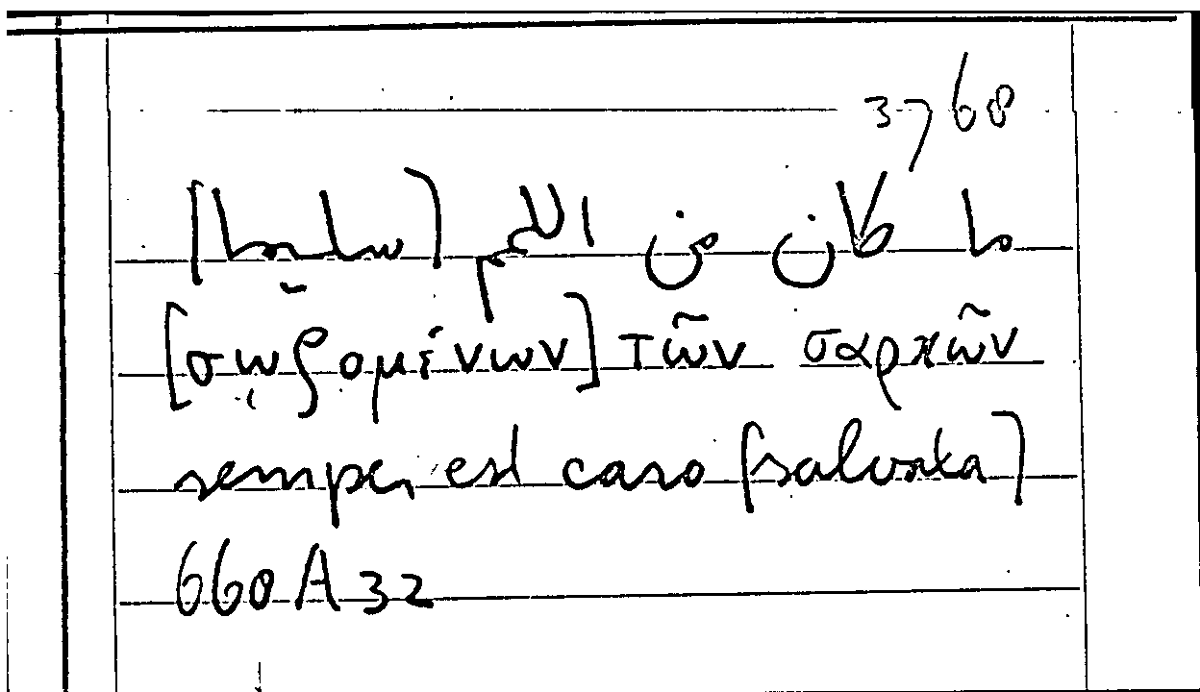 3768
ما كان من اللحم [سليما]
[σῳζομένων] τῶν σαρκῶν
semper est caro [salvata]
660A32